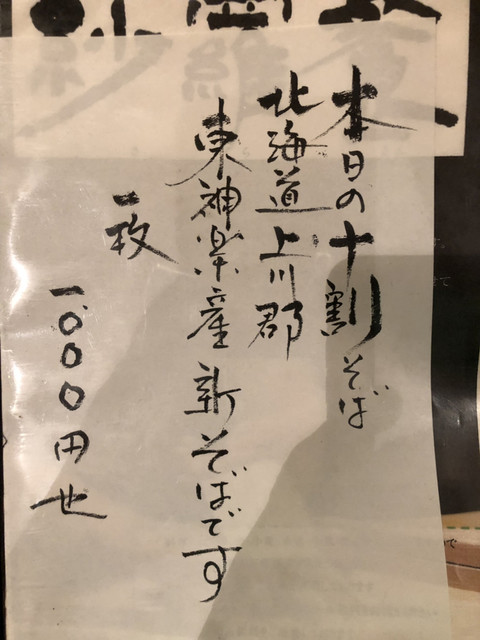 本日の十割そば
北海道上川郡
東神楽産新そばです
一枚
一、〇〇〇円也